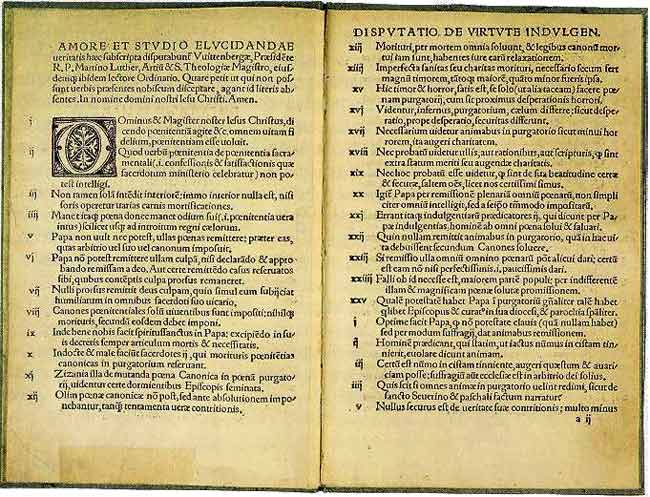 AMORE ET STVDIO ELVCIDANDAE
ueritatis hæc subscripta disputabunf Vuittenbergæ, Præsidēte
R. P. Martino Luther, Artiū & S. Theologiæ Magistro, eius-
dem ibidem lectore Ordinario. Quare petit ut qui non pos-
sunt uerbis præsentes nobiscum disceptare, agant id literis ab-
sentes. In nomine domini nostri Iesu Christi. Amen.
i DOminus & Magister noster Iesus Christus, di-
cendo pœnitentiā agite &c. omnem uitam fi-
delium, pœnitentiam esse uoluit.
ij Quod uerbū pœnitentia de pœnitentia sacra-
mentali (.i. confessionis & satisfactionis quæ
sacerdotum ministerio celebratur) non po-
test intelligi.
iij Non tamen solā intēdit interiorē: immo interior nulla est, nisi
foris operetur uarias carnis mortificationes.
iiij Manet itaq; pœna donec manet odium sui (.i. pœnitentia uera
intus) scilicet usq; ad introitum regni cælorum.
v Papa non uult nec potest, ullas pœnas remittere: præter eas,
quas arbitrio uel suo uel canonum imposuit.
vj Papa nō potest remittere ullam culpā, nisi declarādo & appro-
bando remissam a deo. Aut certe remittēdo casus reseruatos
sibi, quibus contēptis culpa prorsus remaneret.
vij Nulli prorsus remittit deus culpam, quin simul eum subijciat
humiliatum in omnibus sacerdoti suo uicario.
viij Canones pœnitentiales solū uiuentibus sunt impositi: nihilq;
morituris, secundū eosdem debet imponi.
ix Inde bene nobis facit spiritussanctus in Papa: excipiēdo in su-
is decretis semper articulum mortis & necessitatis.
x Indocte & male faciūt sacerdotes ij, qui morituris pœnitētias
canonicas in purgatorium reseruant.
xj Zizania illa de mutanda pœna Canonica in pœnā purgato-
rij, uidentur certe dormientibus Episcopis seminata.
xij Olim pœnæ canonicæ nō post, sed ante absolutionem impo-
nebantur, tanq̄ tentamenta ueræ contritionis.
DISPVTATIO DE VIRTVTE INDVLGEN.
xiij Morituri, per mortem omnia soluunt, & legibus canonū mor-
tui iam sunt, habentes iure earū relaxationem.
xiiij Imperfecta sanitas seu charitas morituri, necessario secum fert
magnū timorem, tātoq; maiorē, quāto minor fuerit ipsa.
xv Hic timor & horror, satis est, se solo (ut alia taceam) facere pœ-
nam purgatorij, cum sit proximus desperationis horrori.
xvj Videntur, infernus, purgatorium, cælum differre: sicut despe-
ratio, prope desperatio, securitas differunt.
xvij Necessarium uidetur animabus in purgatorio sicut minui hor-
rorem, ita augeri charitatem.
xviij Nec probatū uidetur ullis, aut rationibus, aut scripturis, q̄ sint
extra statum meriti seu augendæ charitatis.
xix Nec hoc probatū esse uidetur, q̄ sint de sua beatitudine certæ
& securæ, saltem oēs, licet nos certissimi simus.
xx Igit̄ Papa per remissionē plenariā omniū pœnarū, non simpli-
citer omniū intelligit, sed a seipso tātum̄modo impositarū.
xxj Errant itaq; indulgentiarū prædicatores ij, qui dicunt per Pa-
pæ indulgentias, hominē ab omni pœna solui & saluari.
xxij Quin nullam remittit animabus in purgatorio, quā in hac ui-
ta debuissent secundum Canones soluere.
xxiij Si remissio ulla omniū omnino pœnarū pōt alicui dari; certū
est eam nō nisi perfectissimis .i. paucissimis dari.
xxiiij Falli ob id necesse est, maiorem partē populi: per indifferentē
illam & magnificam pœnæ solutæ promissionem.
xxv Qualē potestatē habet Papa ī purgatoriū gn̄aliter talē habet
q̄libet Episcopus & curat⁹ in sua diocesi & parochia sp̄aliter.
j Optime facit Papa, q̄ nō potestate clauis (quā nullam habet)
sed per modum suffragij, dat animabus remissionem.
ij Hominē prædicant, qui statim, ut iactus nūmus in cistam tin-
nierit, euolare dicunt animam.
iij Certū est nūmo in cistam tinniente, augeri quæstum & auari-
ciam posse: suffragiū aūt ecclesiæ est in arbitrio dei solius.
iiij Quis scit si omnes animæ in purgatorio uelint redimi, sicut de
sancto Seuerino & paschali factum narratur
v Nullus securus est de ueritate suæ contritionis; multo minus
a ij